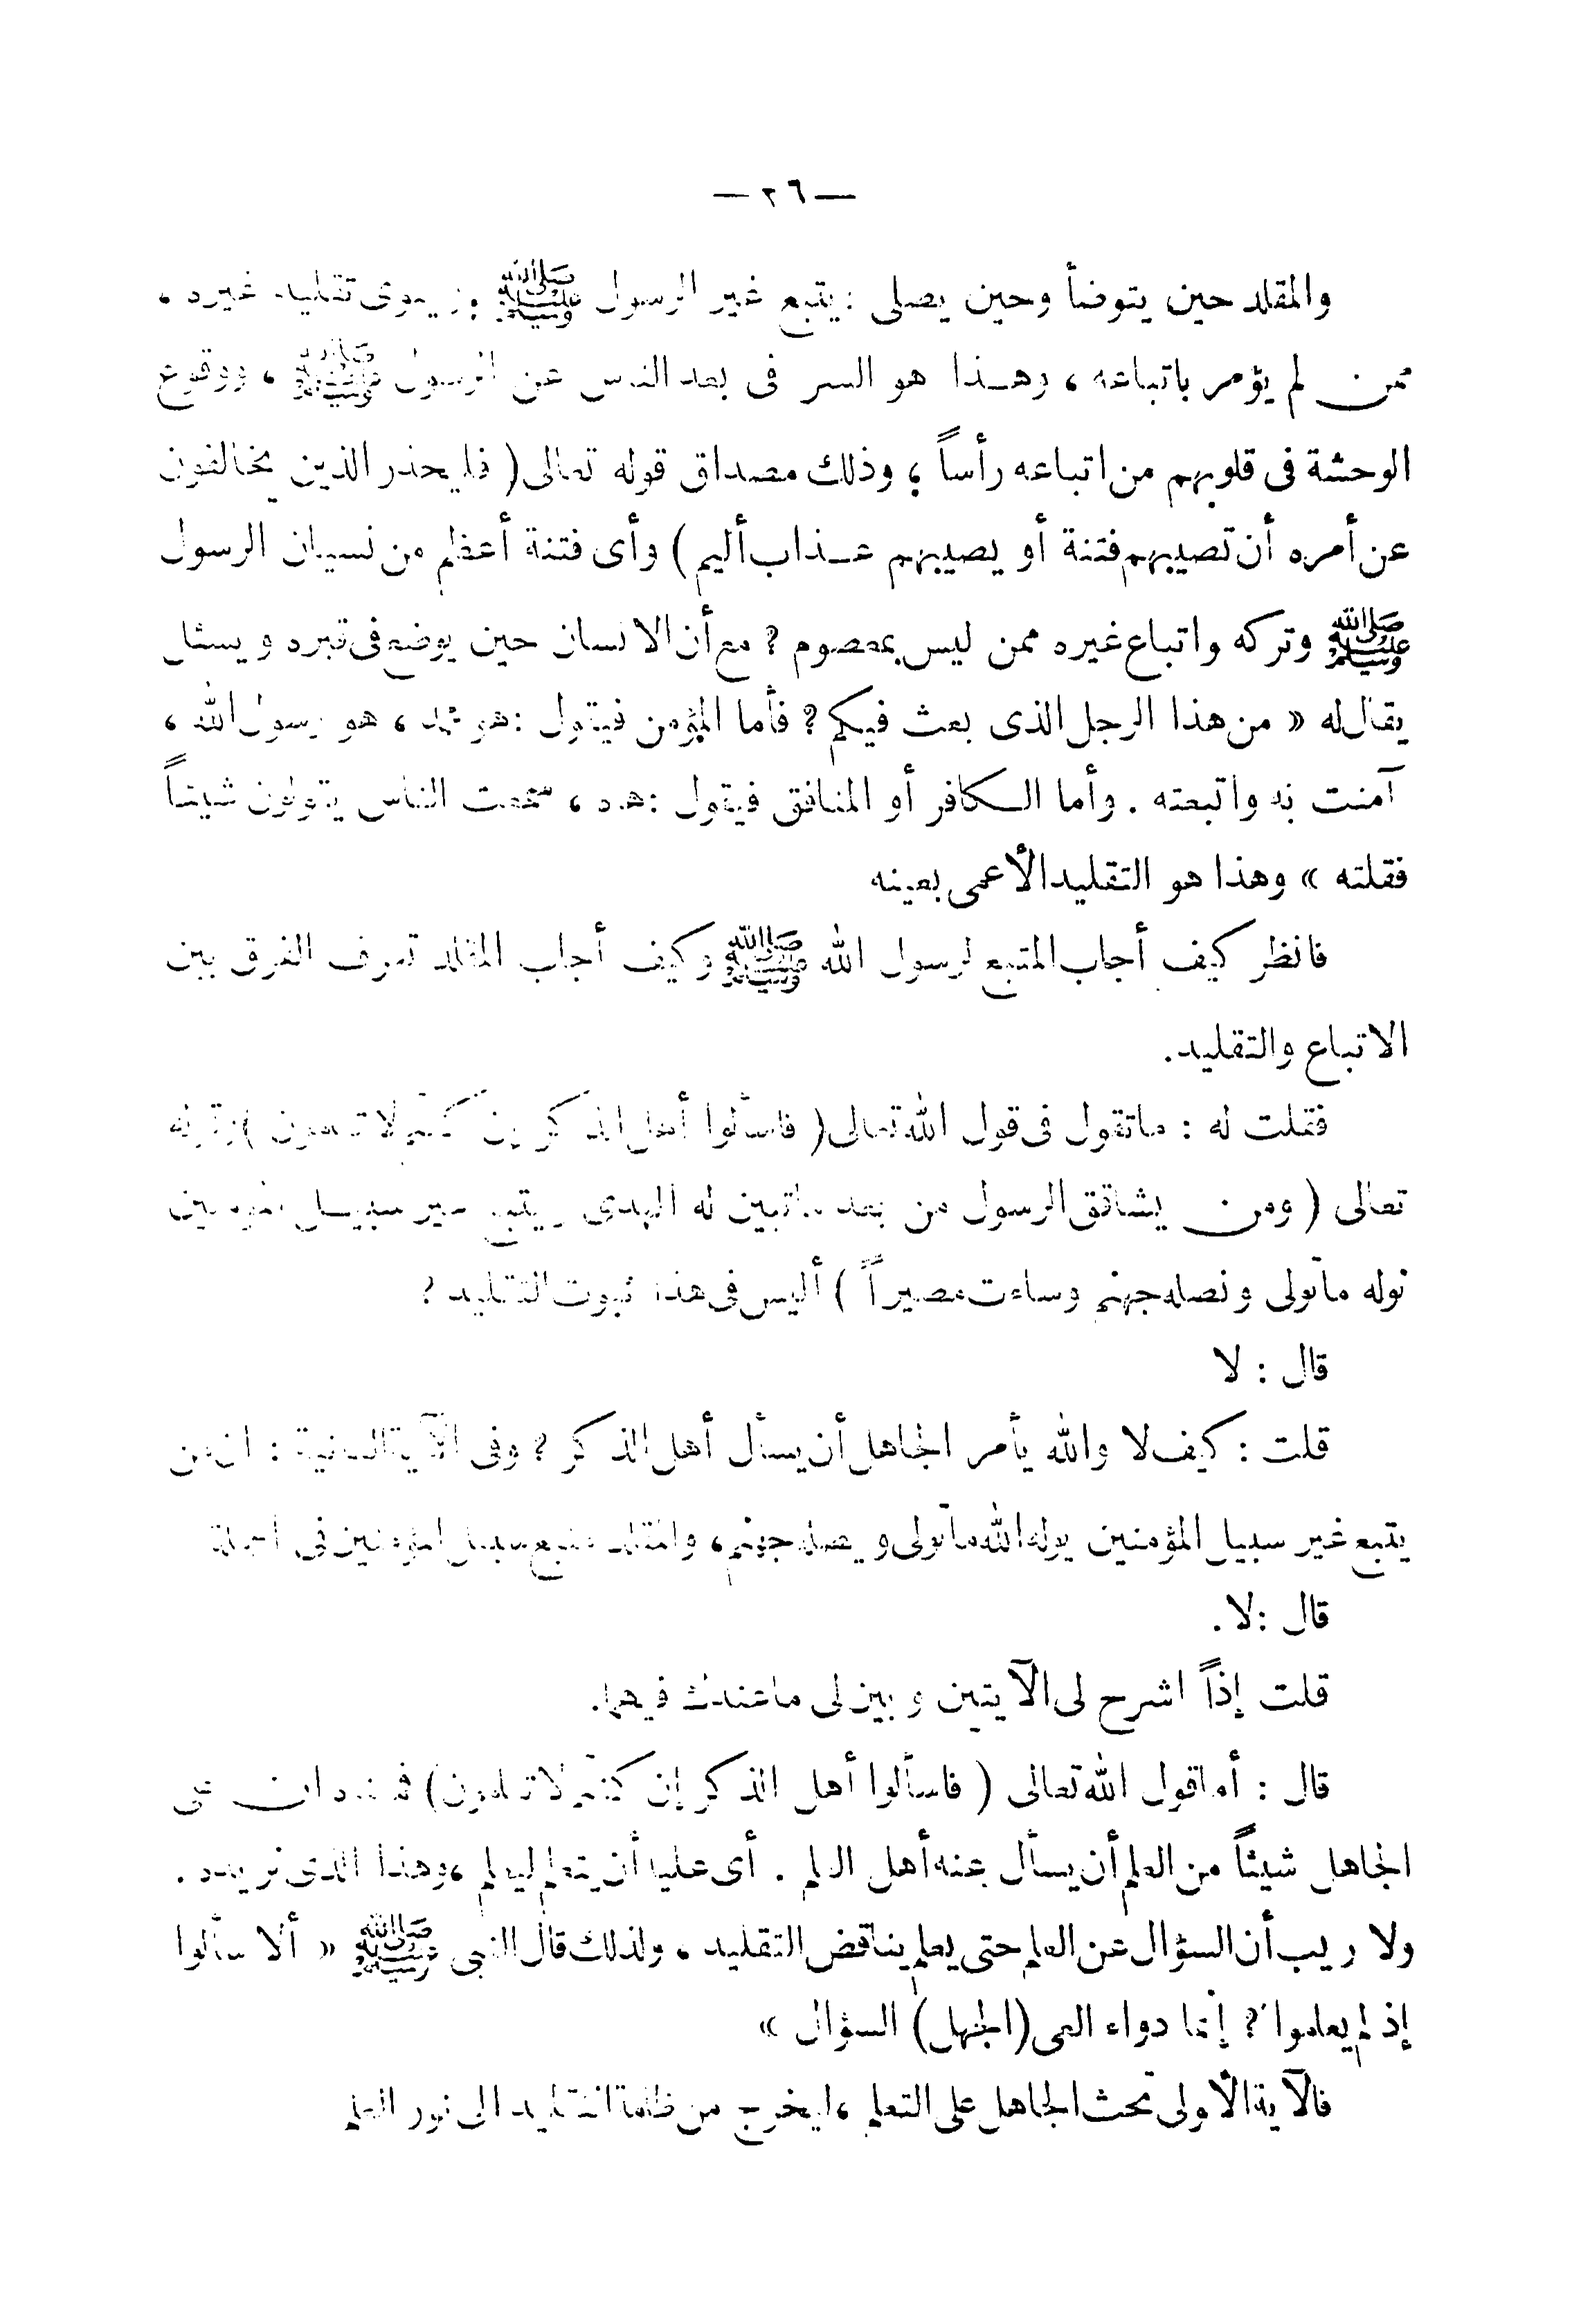 — ٢٦ —
والمقلد حين يتوضأ وحين يصلى : يتبع غير الرسول ﷺ وينوى تقليد غيره ،
ممن لم يؤمر باتباعه ، وهذا هو السر فى بعد الناس عن الرسول ﷺ ، ووقوع
الوحشة فى قلوبهم من اتباعه رأساً ؛ وذلك مصداق قوله تعالى ( فليحذر الذين يخالفون
عن أمره أن تصيبهم فتنة أو يصيبهم عذاب أليم ) وأى فتنة أعظم من نسيان الرسول
ﷺ وتركه واتباع غيره ممن ليس بمعصوم ? مع أن الانسان حين يوضع فى قبره ويسئل
يقال له « من هذا الرجل الذى بعث فيكم ? فأما المؤمن فيقول : هو محمد ، هو رسول الله ،
آمنت به واتبعته . وأما الكافر أو المنافق فيقول : هاه ، سمعت الناس يقولون شيئاً
فقلته » وهذا هو التقليد الأعمى بعينه
فانظر كيف أجاب المتبع لرسول الله ﷺ وكيف أجاب المقلد تعرف الفرق بين
الاتباع والتقليد .
فقلت له : ماتقول فى قول الله تعالى ( فاسألوا أهل الذكر إن كنتم لا تعلمون ) وقوله
تعالى ( ومن يشاقق الرسول من بعد ماتبين له الهدى ويتبع غير سبيل المؤمنين
نوله ماتولى ونصله جهنم وساءت مصيراً ) أليس فى هذا ثبوت التقليد ?
قال : لا
قلت : كيف لا والله يأمر الجاهل أن يسأل أهل الذكر ? وفى الآية الثانية : ان من
يتبع غير سبيل المؤمنين يوله الله ماتولى ويصله جهنم ، والمقلد متبع سبيل المؤمنين فى الجملة
قال : لا .
قلت إذاً اشرح لى الآيتين وبين لى ماعندك فيهما .
قال : أما قول الله تعالى ( فاسألوا أهل الذكر إن كنتم لا تعلمون ) على
الجاهل شيئاً من العلم أن يسأل عنه أهل العلم . أى عليه أن يتعلم ليعلم ، وهذا الذى نريده .
ولا ريب أن السؤال عن العلم حتى يعلم يناقض التقليد ، ولذلك قال النبى ﷺ « ألا سألوا
إذ لم يعلموا ? إنما دواء العى ( الجهل ) السؤال »
فالآية الأولى تحث الجاهل على التعلم ، ليخرج من ظلمة التقليد الى نور العلم